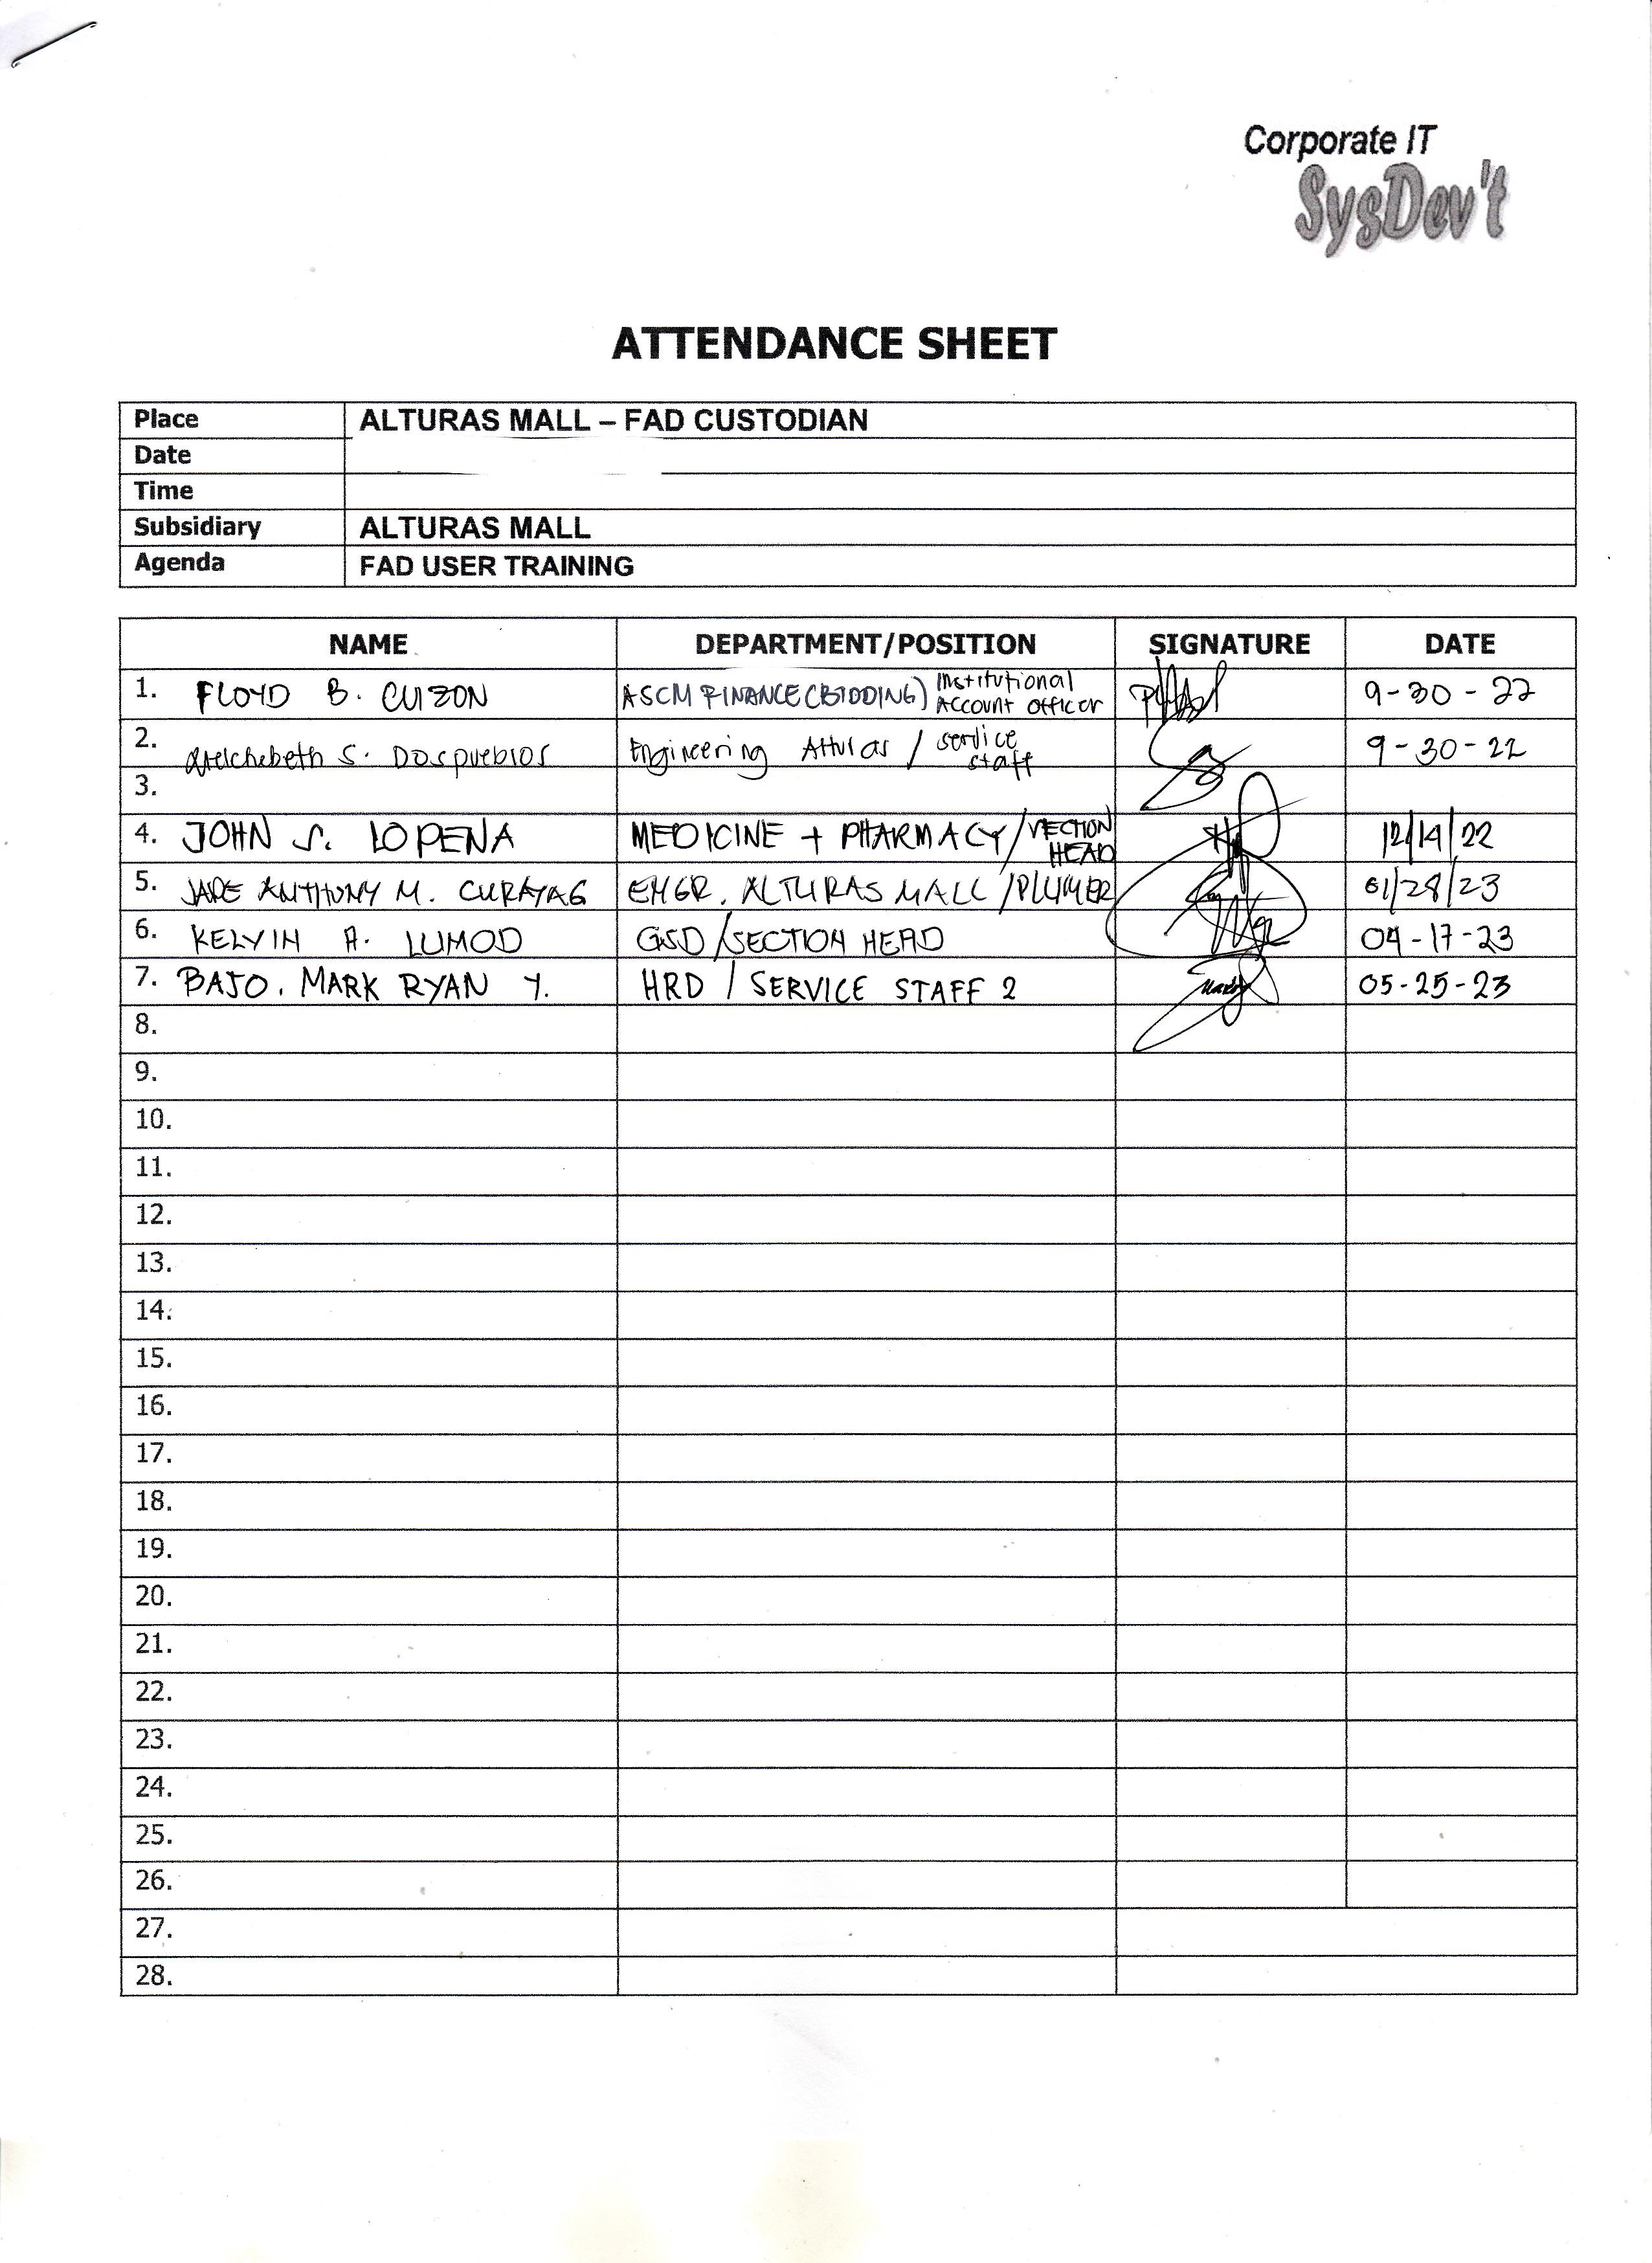 Corporate IT
SysDev't
ATTENDANCE SHEET
Place ALTURAS MALL – FAD CUSTODIAN
Date
Time
Subsidiary ALTURAS MALL
Agenda FAD USER TRAINING
NAME DEPARTMENT/POSITION SIGNATURE DATE
1. FLOYD B. CUIZON ASCM FINANCE (BIDDING) Institutional Account Officer 9-30-22
2. S. Dospueblos Engineering Alturas / service staff 9-30-22
3.
4. JOHN S. LOPENA MEDICINE + PHARMACY / SECTION HEAD 12/14/22
5. JADE ANTHONY M. CURAYAG ENGR. ALTURAS MALL / PLUMER 01/28/23
6. KELVIN A. LUMOD GSD / SECTION HEAD 04-17-23
7. BAJO. MARK RYAN Y. HRD / SERVICE STAFF 2 05-25-23
8.
9.
10.
11.
12.
13.
14.
15.
16.
17.
18.
19.
20.
21.
22.
23.
24.
25.
26.
27.
28.